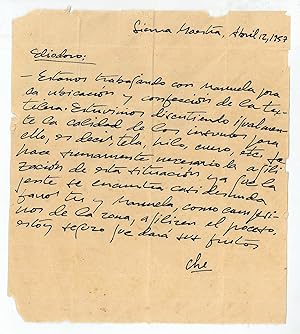 Sierra Maestra, Abril 12, 1957
Eliodoro:
- Estamos trabajando con Manuela para
la ubicación y confección de la tex-
tilera. Estuvimos discutiendo igualmen-
te la calidad de los insumos para
ello, es decir, tela, hilo, cuero, etc. Se
hace sumamente necesario la agili-
zación de esta situación ya que la
gente se encuentra casi desnuda
tú y Manuela, como campesi-
nos de la zona, agilizen el proceso,
estoy seguro que dará sus frutos
Che